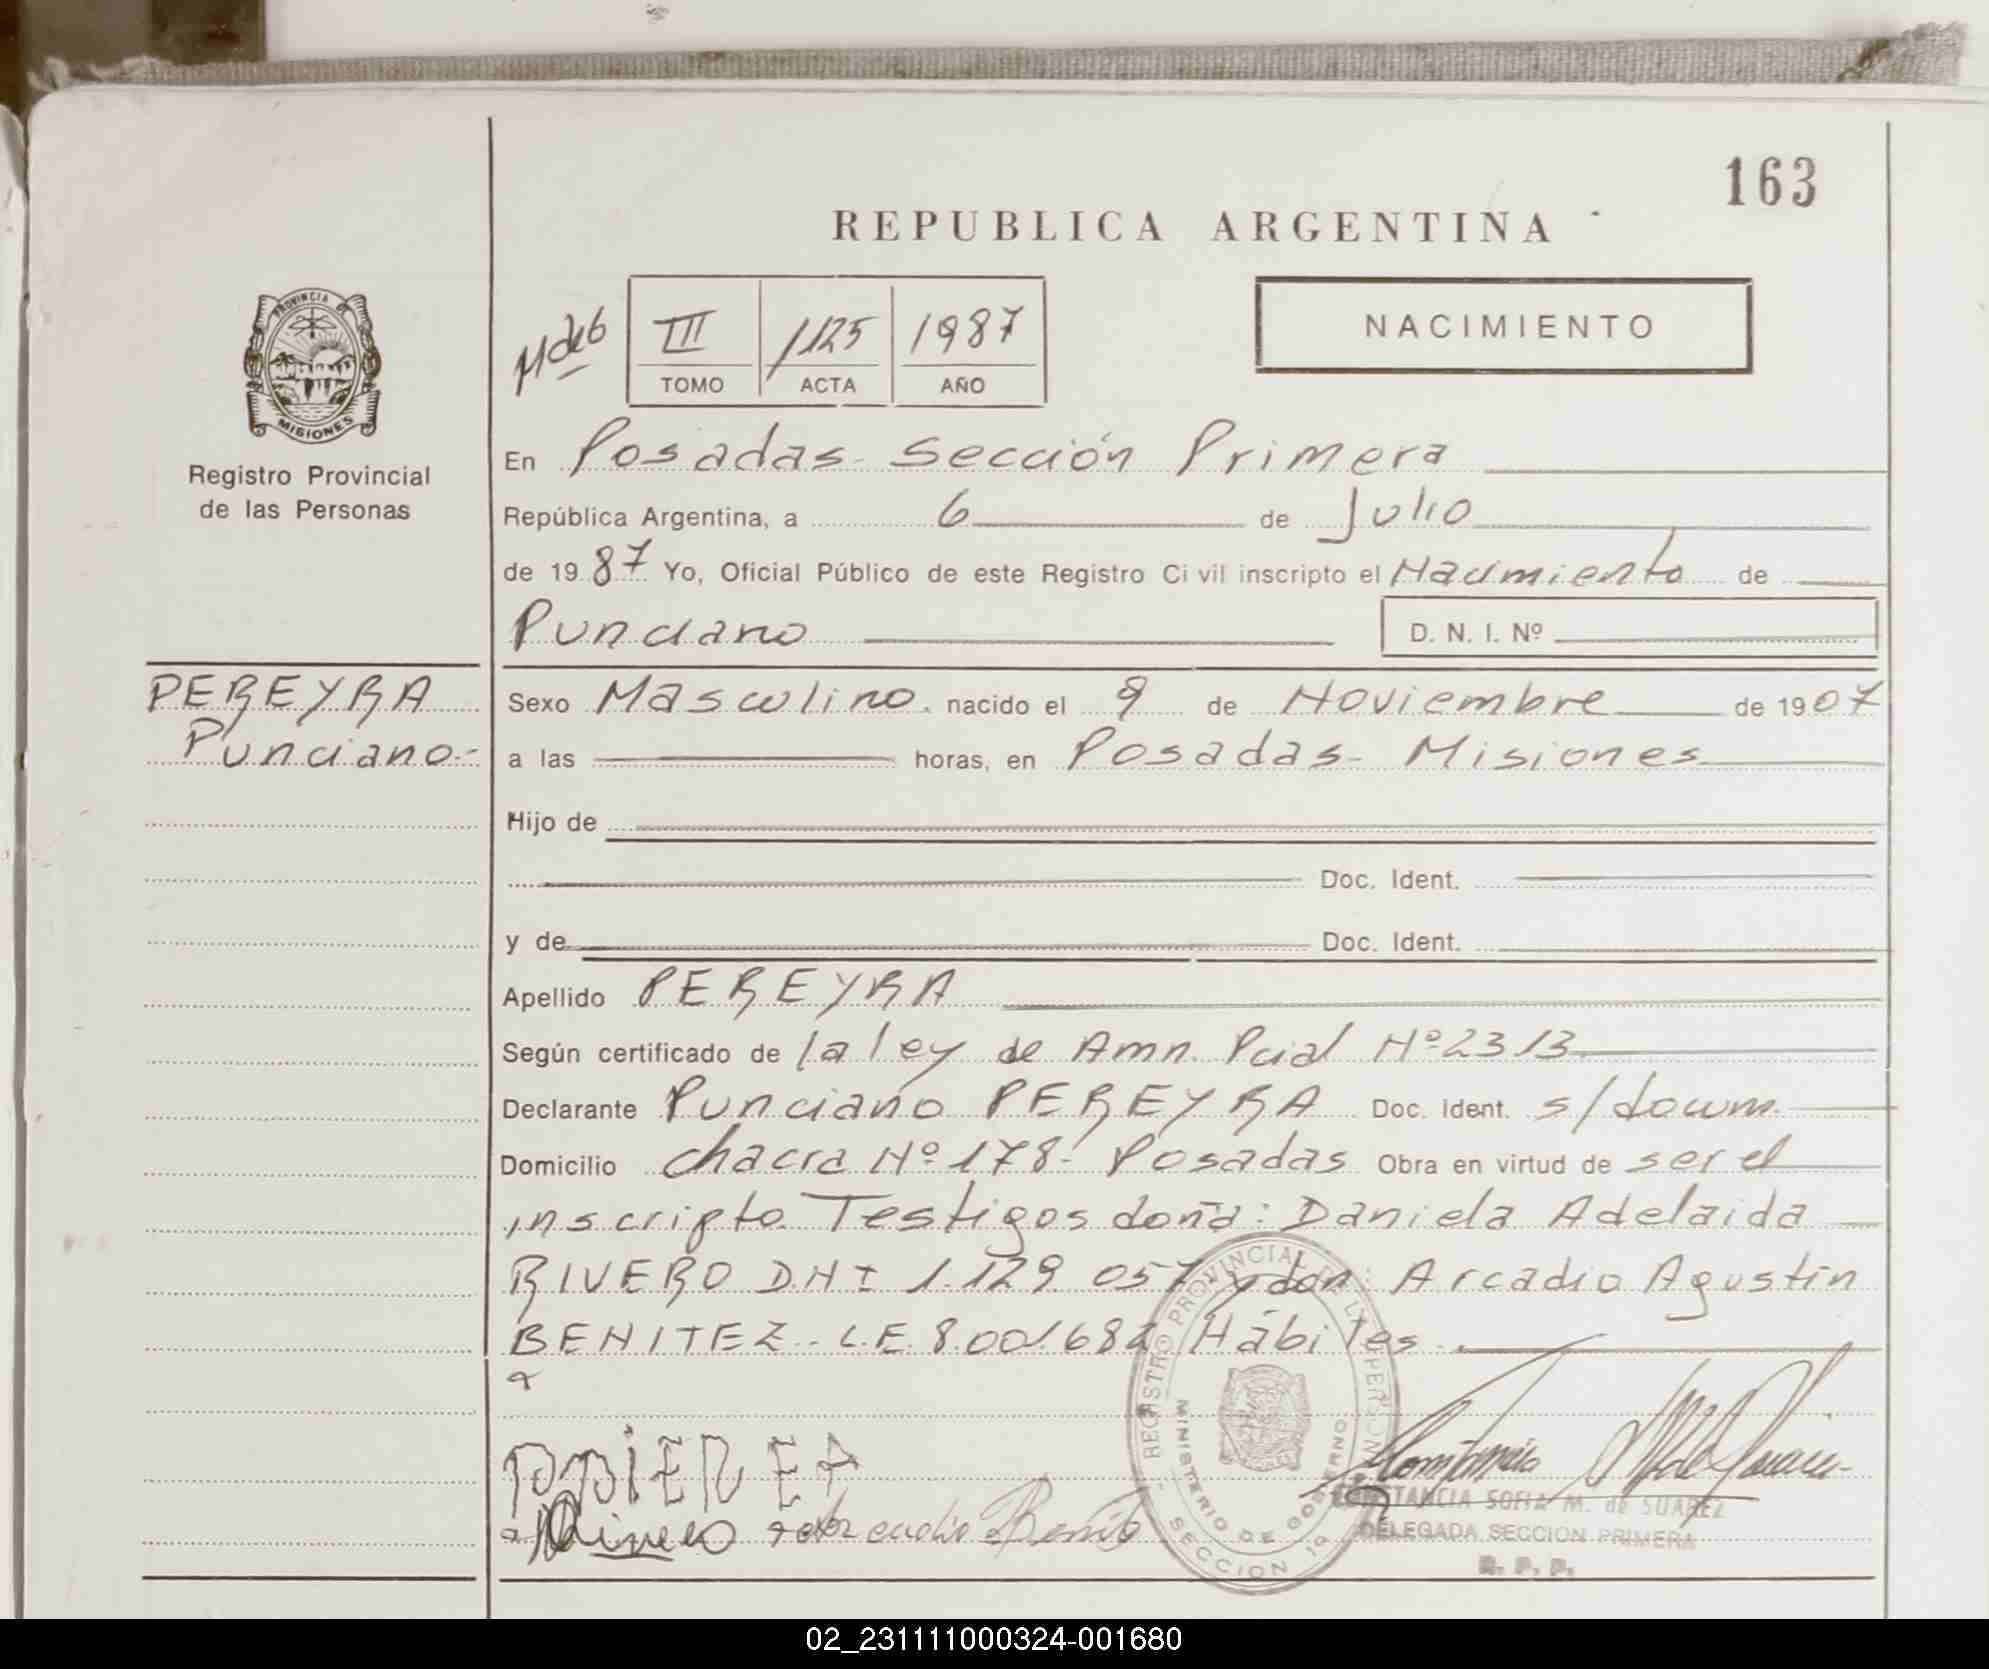 163
REPUBLICA ARGENTINA
PROVINCIA DE
MISIONES
Registro Provincial
de las Personas
III 1125 1987
TOMO ACTA AÑO
NACIMIENTO
En Posadas - Sección Primera
República Argentina, a 6 de Julio
de 1987 Yo, Oficial Público de este Registro Civil inscripto el Nacimiento de
Punciano D. N. I. Nº
PEREYRA
Punciano.-
Sexo Masculino. nacido el 9 de Noviembre de 1907
a las horas, en Posadas - Misiones
Hijo de
Doc. Ident.
y de Doc. Ident.
Apellido PEREYRA
Según certificado de la ley de Amn. Pcial Nº 2313
Declarante Punciano PEREYRA Doc. Ident. s/docum.
Domicilio chacra Nº 178 - Posadas Obra en virtud de ser el
inscripto. Testigos doña: Daniela Adelaida
RIVERO D.N.I 1.129.057 y don: Arcadio Agustín
BENITEZ - L.E. 8.001.682 Hábiles.
REGISTRO PROVINCIAL DE LAS PERSONAS
MINISTERIO DE GOBIERNO
SECCION 1a
CONSTANCIA SOFIA M. de SUAREZ
DELEGADA SECCION PRIMERA
R. P. P.
02_231111000324-001680